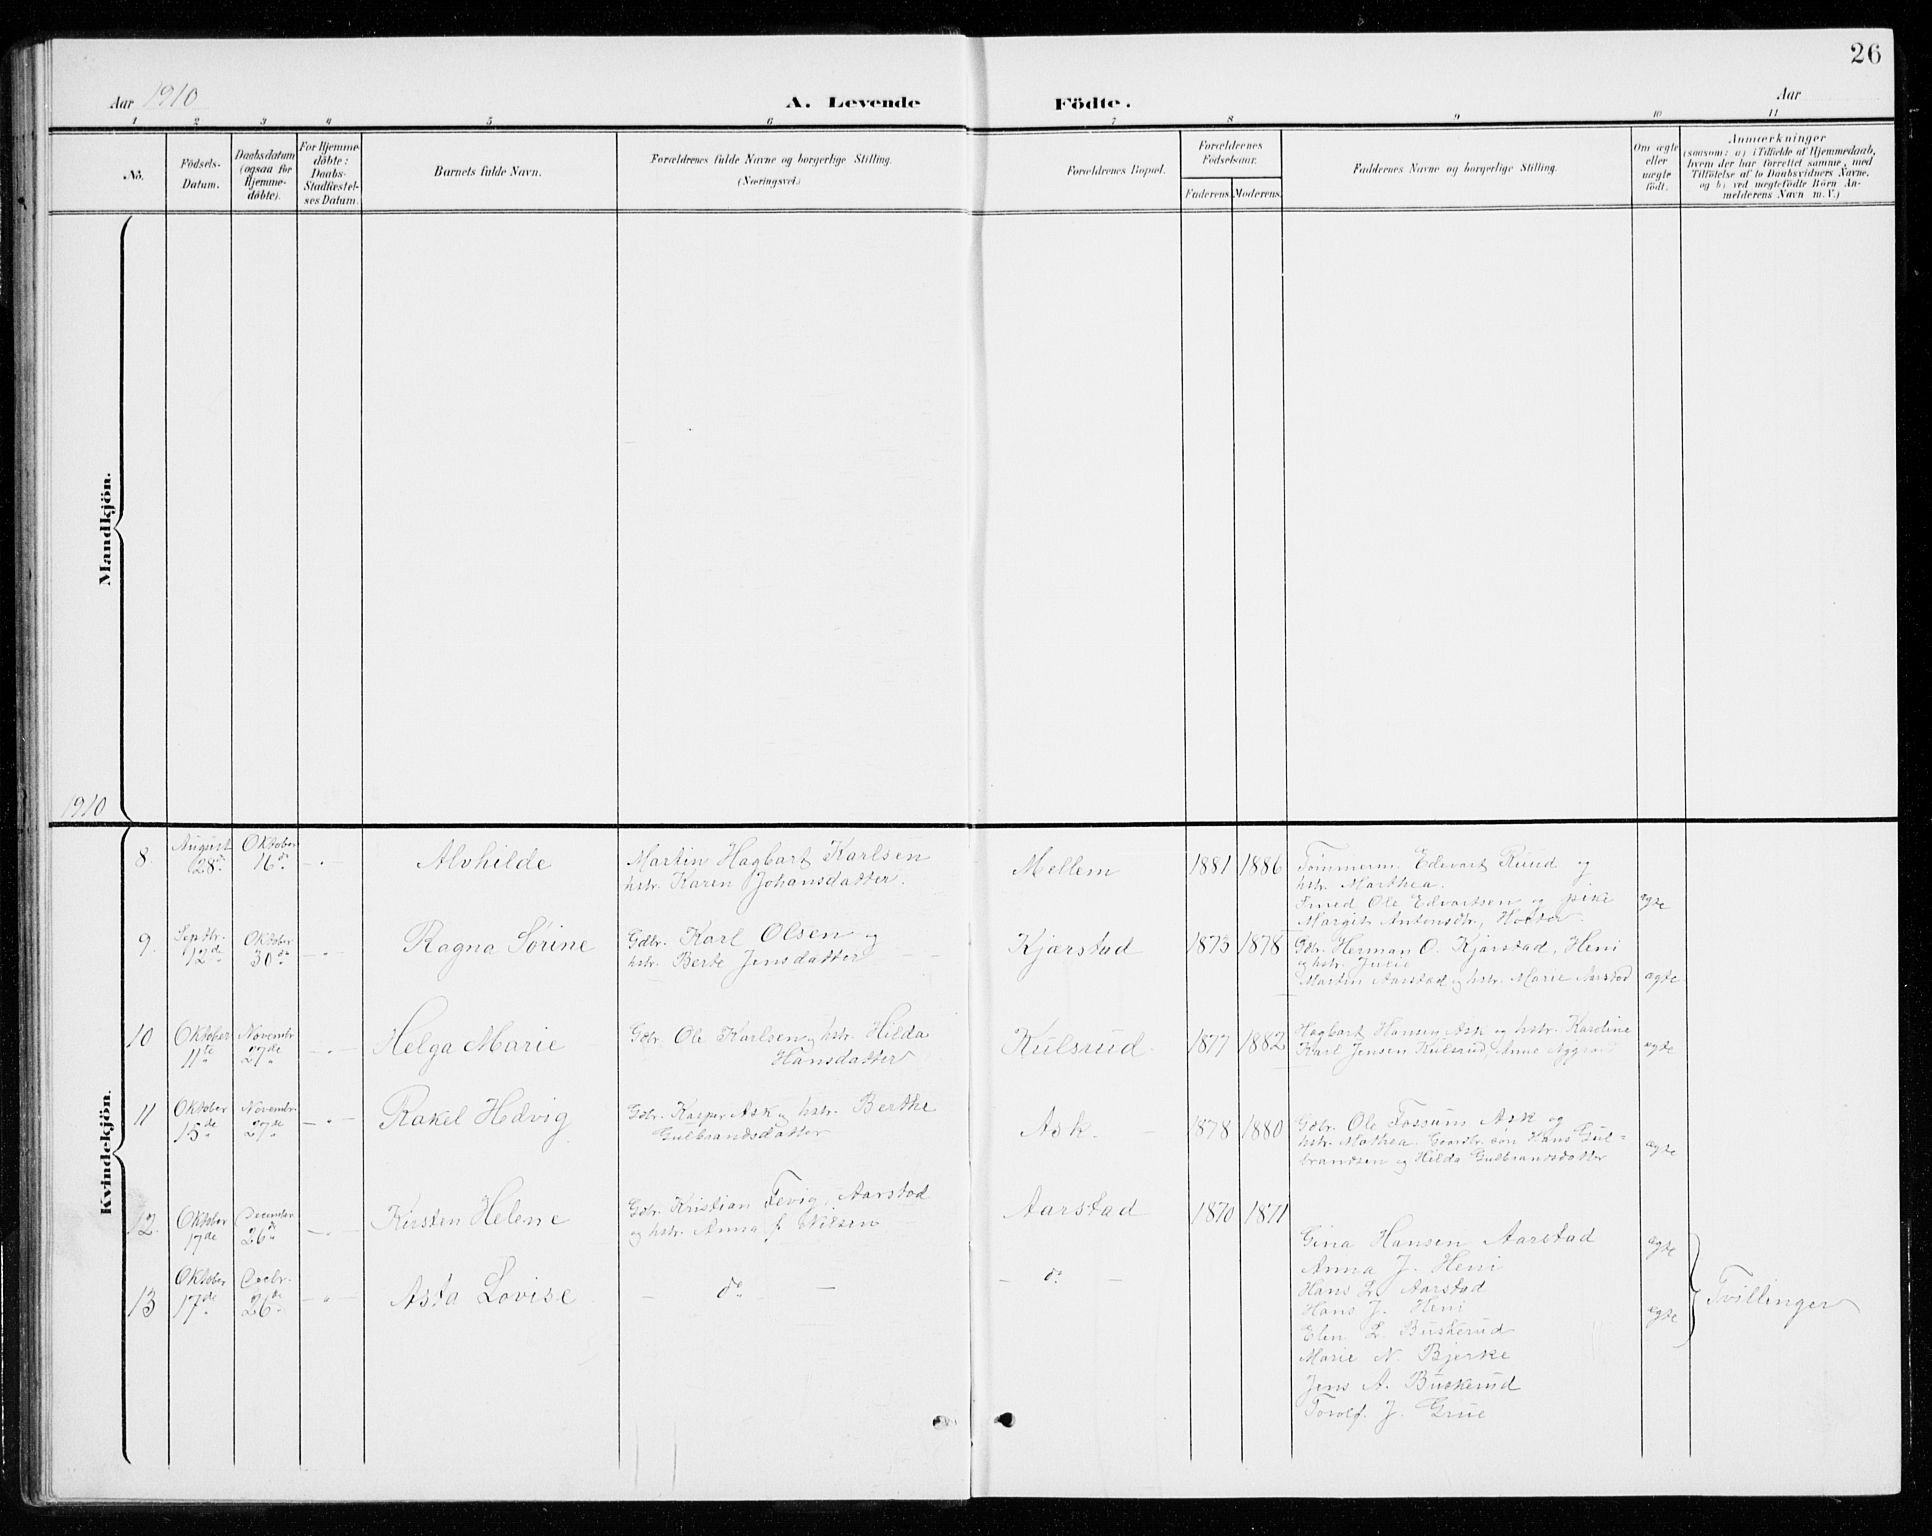 26
Aar 1910
A. Levende Födte.
Aar
1 2 3 4 5 6 7 8 9 10 11
No.
Födsels-
Datum.
Daabsdatum
(ogsaa for
Hjemme-
döbte).
For Hjemme-
döbte:
Daabs-
Stadfæstel-
ses Datum.
Barnets fulde Navn.
Forældrenes fulde Navne og borgerlige Stilling.
(Næringsvei.)
Forældrenes Bopæl.
Forældrenes
Födselsaar.
Faderens. Moderens.
Faddernes Navne og borgerlige Stilling.
Om ægte
eller
uægte
födt.
Anmærkninger
(saasom: a) i Tilfælde af Hjemmedaab,
hvem der har forrettet samme, med
Tilföielse af to Daabsvidners Navne,
og b) ved uægtefödte Börn An-
melderens Navn m. V.)
Mandkjön.
1910
Kvindekjön.
8
August
28de
Oktober
16de
- " -
Alvhilde
Martin Hagbart Karlsen
hstr. Karen Johansdatter.
Mellem
1881 1886
Tømmerm. Edvart Ruud og
hstr. Marthea.
Smed Ole Edvartsen og pike
Margit Antonsdtr,
ægte
9.
Septbr.
12de
Oktober
30de
- " -
Ragna Sørine
Gdbr. Karl Olsen og
hstr. Berte Jensdatter
Kjærstad
1875 1878
Gdbr. Herman O. Kjærstad, Heni
og hstr. Julie
Martin Aarstad og hstr. Marie Aarstad
ægte
10
Oktober
11te
Novembr
27de
- " -
Helga Marie
Gdbr. Ole Karlsen og hstr. Hilda
Hansdatter
Kulsrud
1877 1882
Hagbart Hansen Ask og hstr. Karoline
Karl Jensen Kulsrud, Anne
ægte
11
Oktober
15de
Novembr.
27de
- " -
Rakel Hedvig
Gdbr. Kasper Ask og hstr. Berthe
Gulbrandsdatter
Ask.
1878 1880
Gdbr. Ole Fossum Ask og
hstr. Mathea. Gaardbr. søn Hans Gul-
brandsen og Hilda Gulbrandsdatter
ægte
12.
Oktober
17de
December
26de
- " -
Kirsten Helene
Gdbr. Kristian Fevig, Aarstad
og hstr. Anna f. Nilsen
Aarstad
1870 1871
Gina Hansen Aarstad
Anna J. Heni
Hans L. Aarstad
Hans J. Heni
Elen L. Buskerud
Marie N. Bjerke
Jens A. Buskerud
Torolf J. Grue
ægte
13
Oktober
17de
Decbr.
26de
- " -
Asta Lovise
- do -
- do -
ægte
Tvillinger